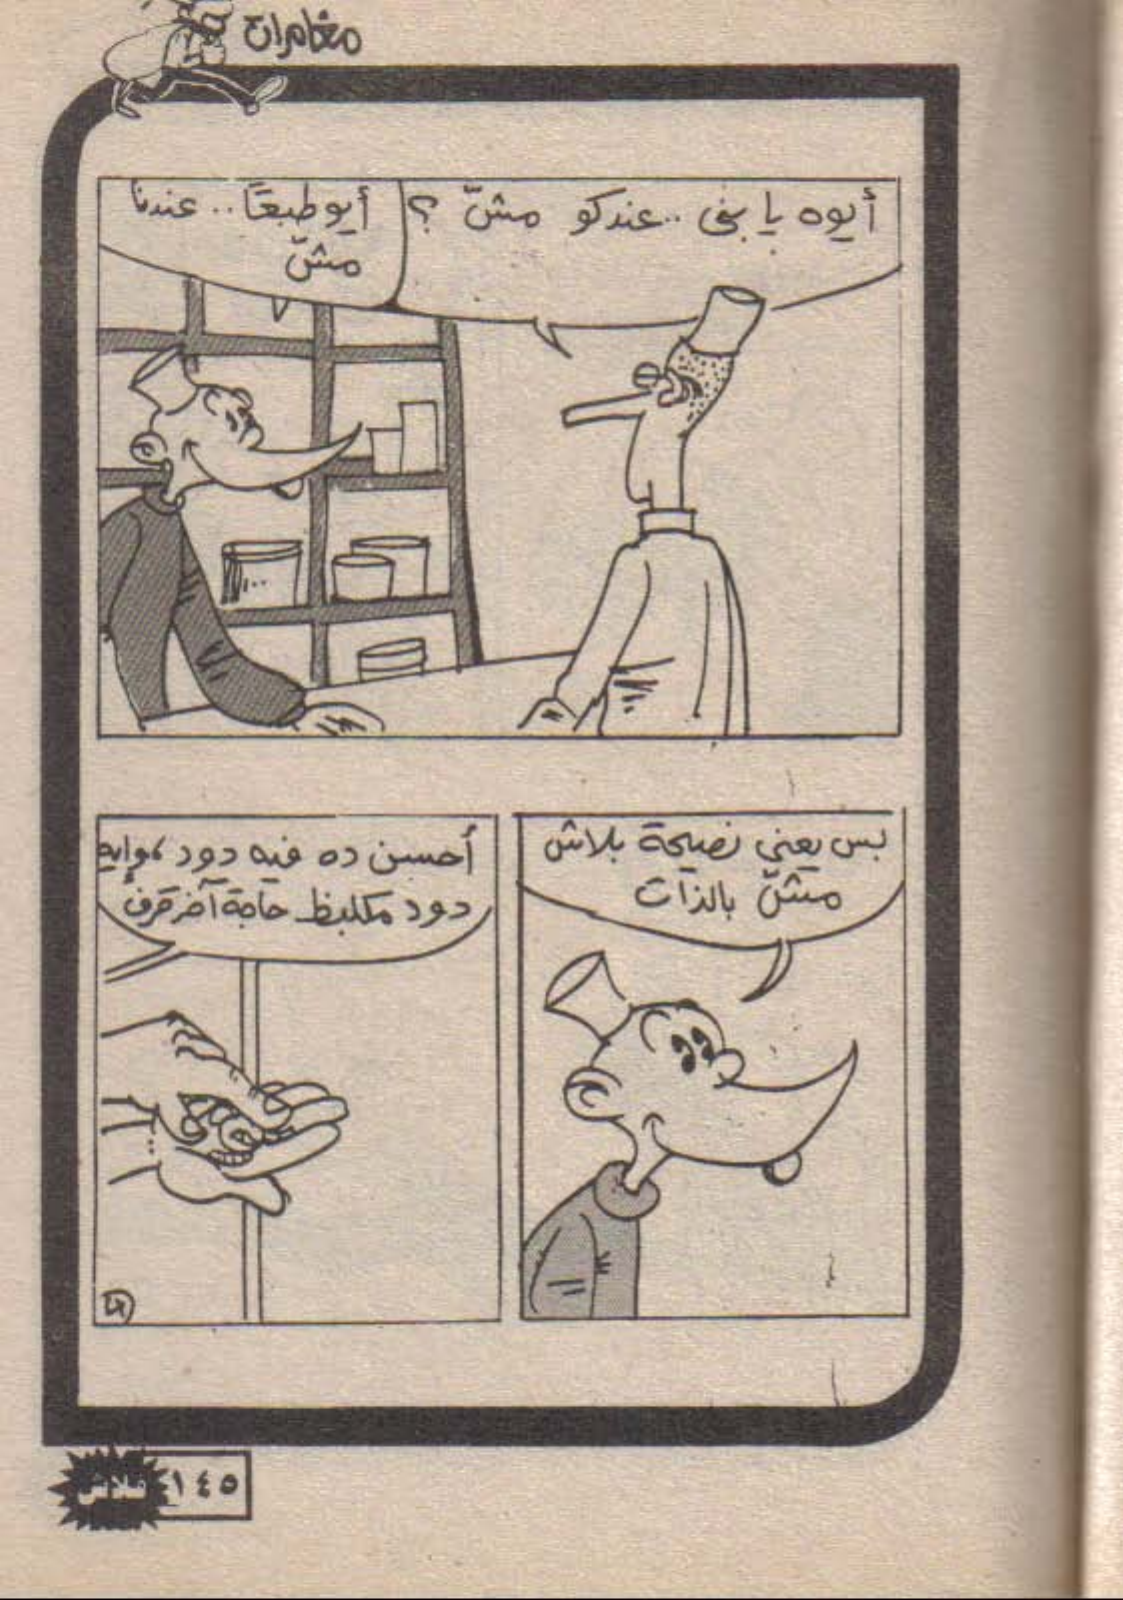 مغامرات
أيوه يا بنى ..عندكو مشّ ؟
أيو طبعًا .. عندنا
مشّ
بس يعني نصيحة بلاش
مشّ بالذات
أحسن ده فيه دود ، وايه
دود مكلبظ حاجة آخر قرف
١٤٥
فلاش